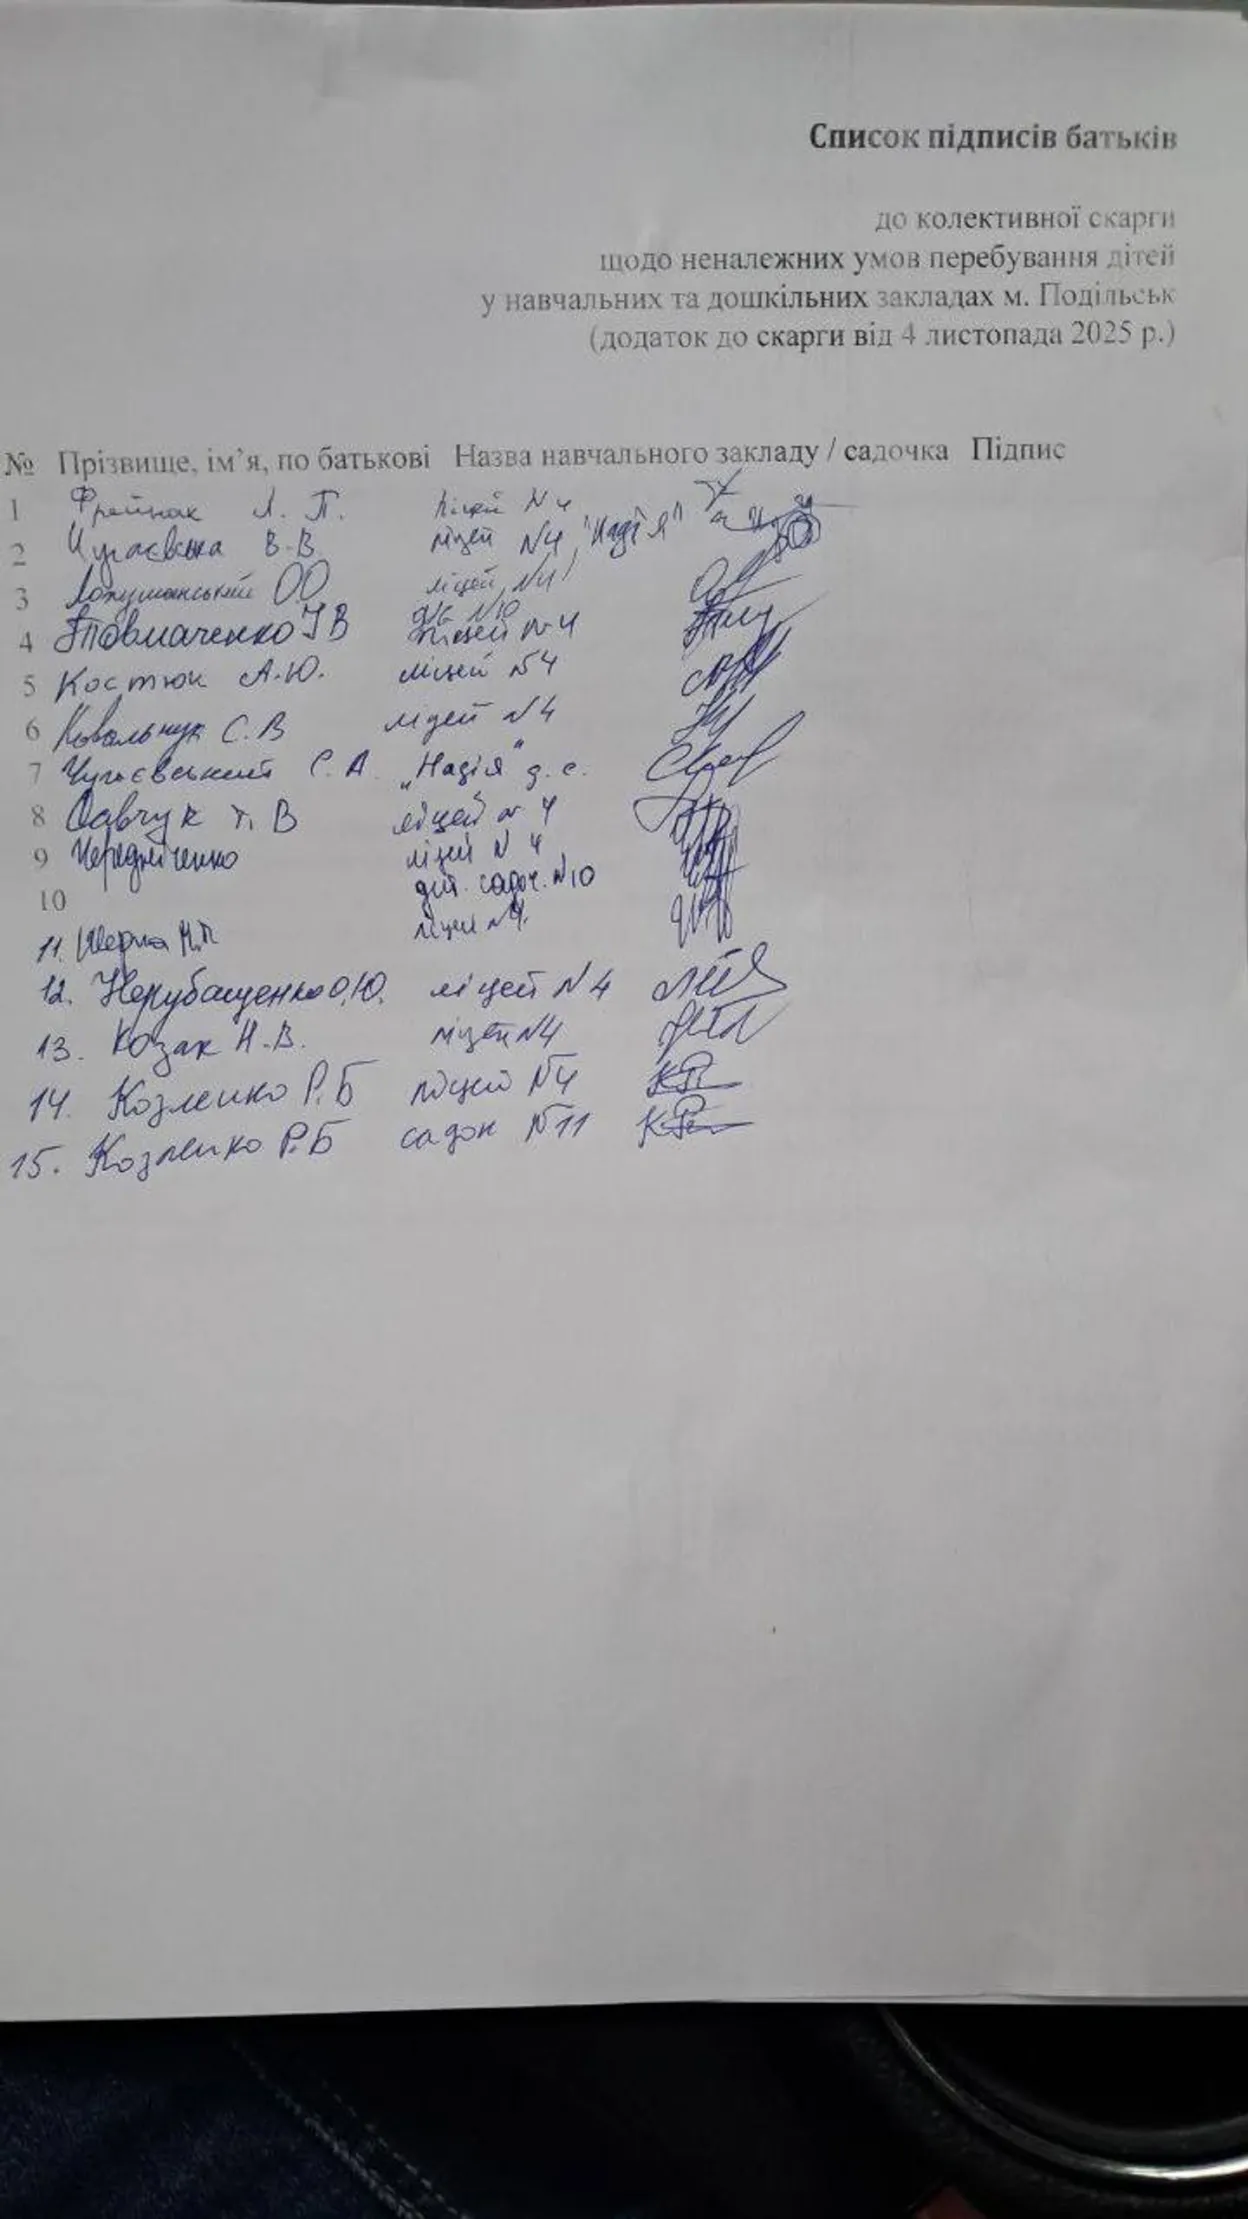 Список підписів батьків
до колективної скарги
щодо неналежних умов перебування дітей
у навчальних та дошкільних закладах м. Подільськ
(додаток до скарги від 4 листопада 2025 р.)
№ Прізвище, ім’я, по батькові Назва навчального закладу / садочка Підпис
1 Фрейнак Л. П. ліцей N 4
2 Чугаєвська В.В. ліцей N4, "Надія"
3 ОО ліцей N4
N10
4 Товмаченко ліцей N 4
5 Костюк А.Ю. ліцей N 4
6 Ковальчук С.В ліцей N 4
7 Чугаєвський С.А. „Надія" д.с.
8 Савчук Т. В ліцей N 4
9 Чередніченко ліцей N 4
10 дит. садоч. N10
11. М.П ліцей N4.
12. Нерубащенко О.Ю. ліцей N4
13. Козак Н.В. ліцей N4
14. Козленко Р.Б ліцей N4
15. Козленко Р.Б садок N11